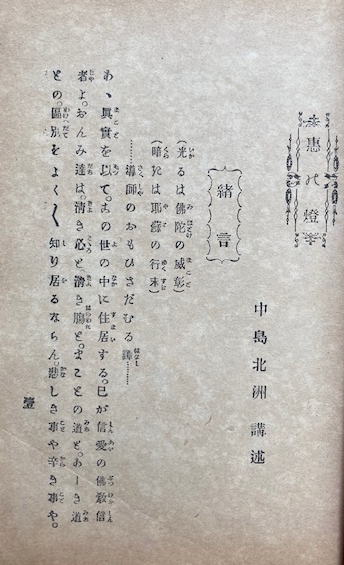 惠の燈
中島北洲 講述
緒言
(光るは佛陀の威彰)
(暗きは耶蘇の行末)
……導師のおもひさだむる譚……
あゝ眞實を以て。この世の中に住居する。己が信愛の佛敎信
者よ。おんみ達は淸き心と、淸き膓と。まことの道と。あしき道
との。區別をよく〳〵知り居るならん。悲しき事や辛き事や。
壹